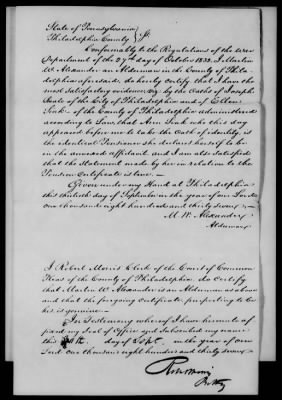 State of Pennsylvania
Philadelphia County } ss.
Conformably to the Regulations of the War
Department of the 27th day of October 1832. I Martin
W. Alexander an Alderman in the County of Phila-
delphia aforesaid. do hereby certify that I have the
most satisfactory evidence, viz. by the Oaths of Joseph
of the City of Philadelphia and of Ellen
of the County of Philadelphia administered
according to Law, that Ann who this day
appeared before me to take the Oath of identity, is
the identical Pensioner she declares herself to be
in the annexed affidavit, and I am also satisfied
that the statement made by her in relation to the
Pension Certificate is true.
Given under my Hand at Philadelphia
this thirtieth day of September in the year of our Lord
one thousand eight hundred and thirty seven
M. W. Alexander
Alderman
I Robert Morris Clerk of the Court of Common
Pleas of the County of Philadelphia. do Certify
that Martin W. Alexander is an Alderman as above
and that the foregoing Certificate purporting to be
his is genuine.
In Testimony whereof I have hereunto af-
fixed my Seal of Office and Subscribed my name
this 30th. day of Sept. in the year of our
Lord one thousand eight hundred and thirty seven